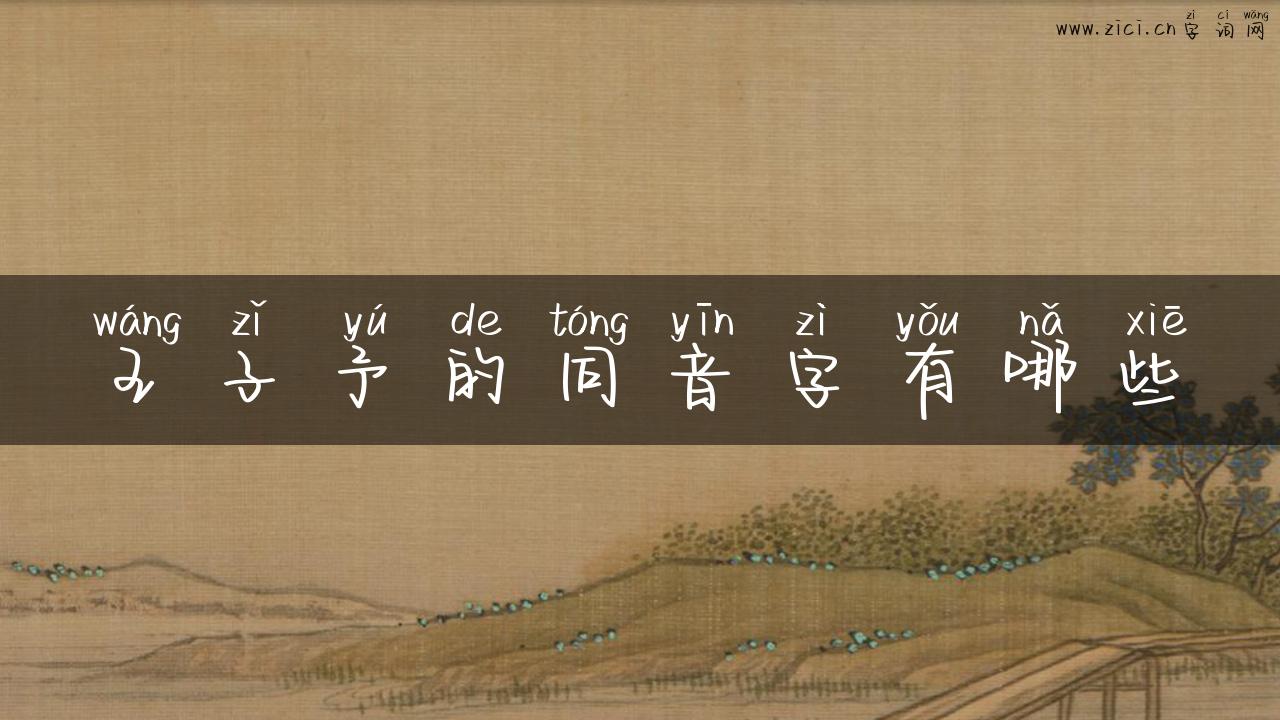 zì cí wǎng
www.zici.cn字词网
wáng zǐ yú de tóng yīn zì yǒu nǎ xiē
王子予的同音字有哪些